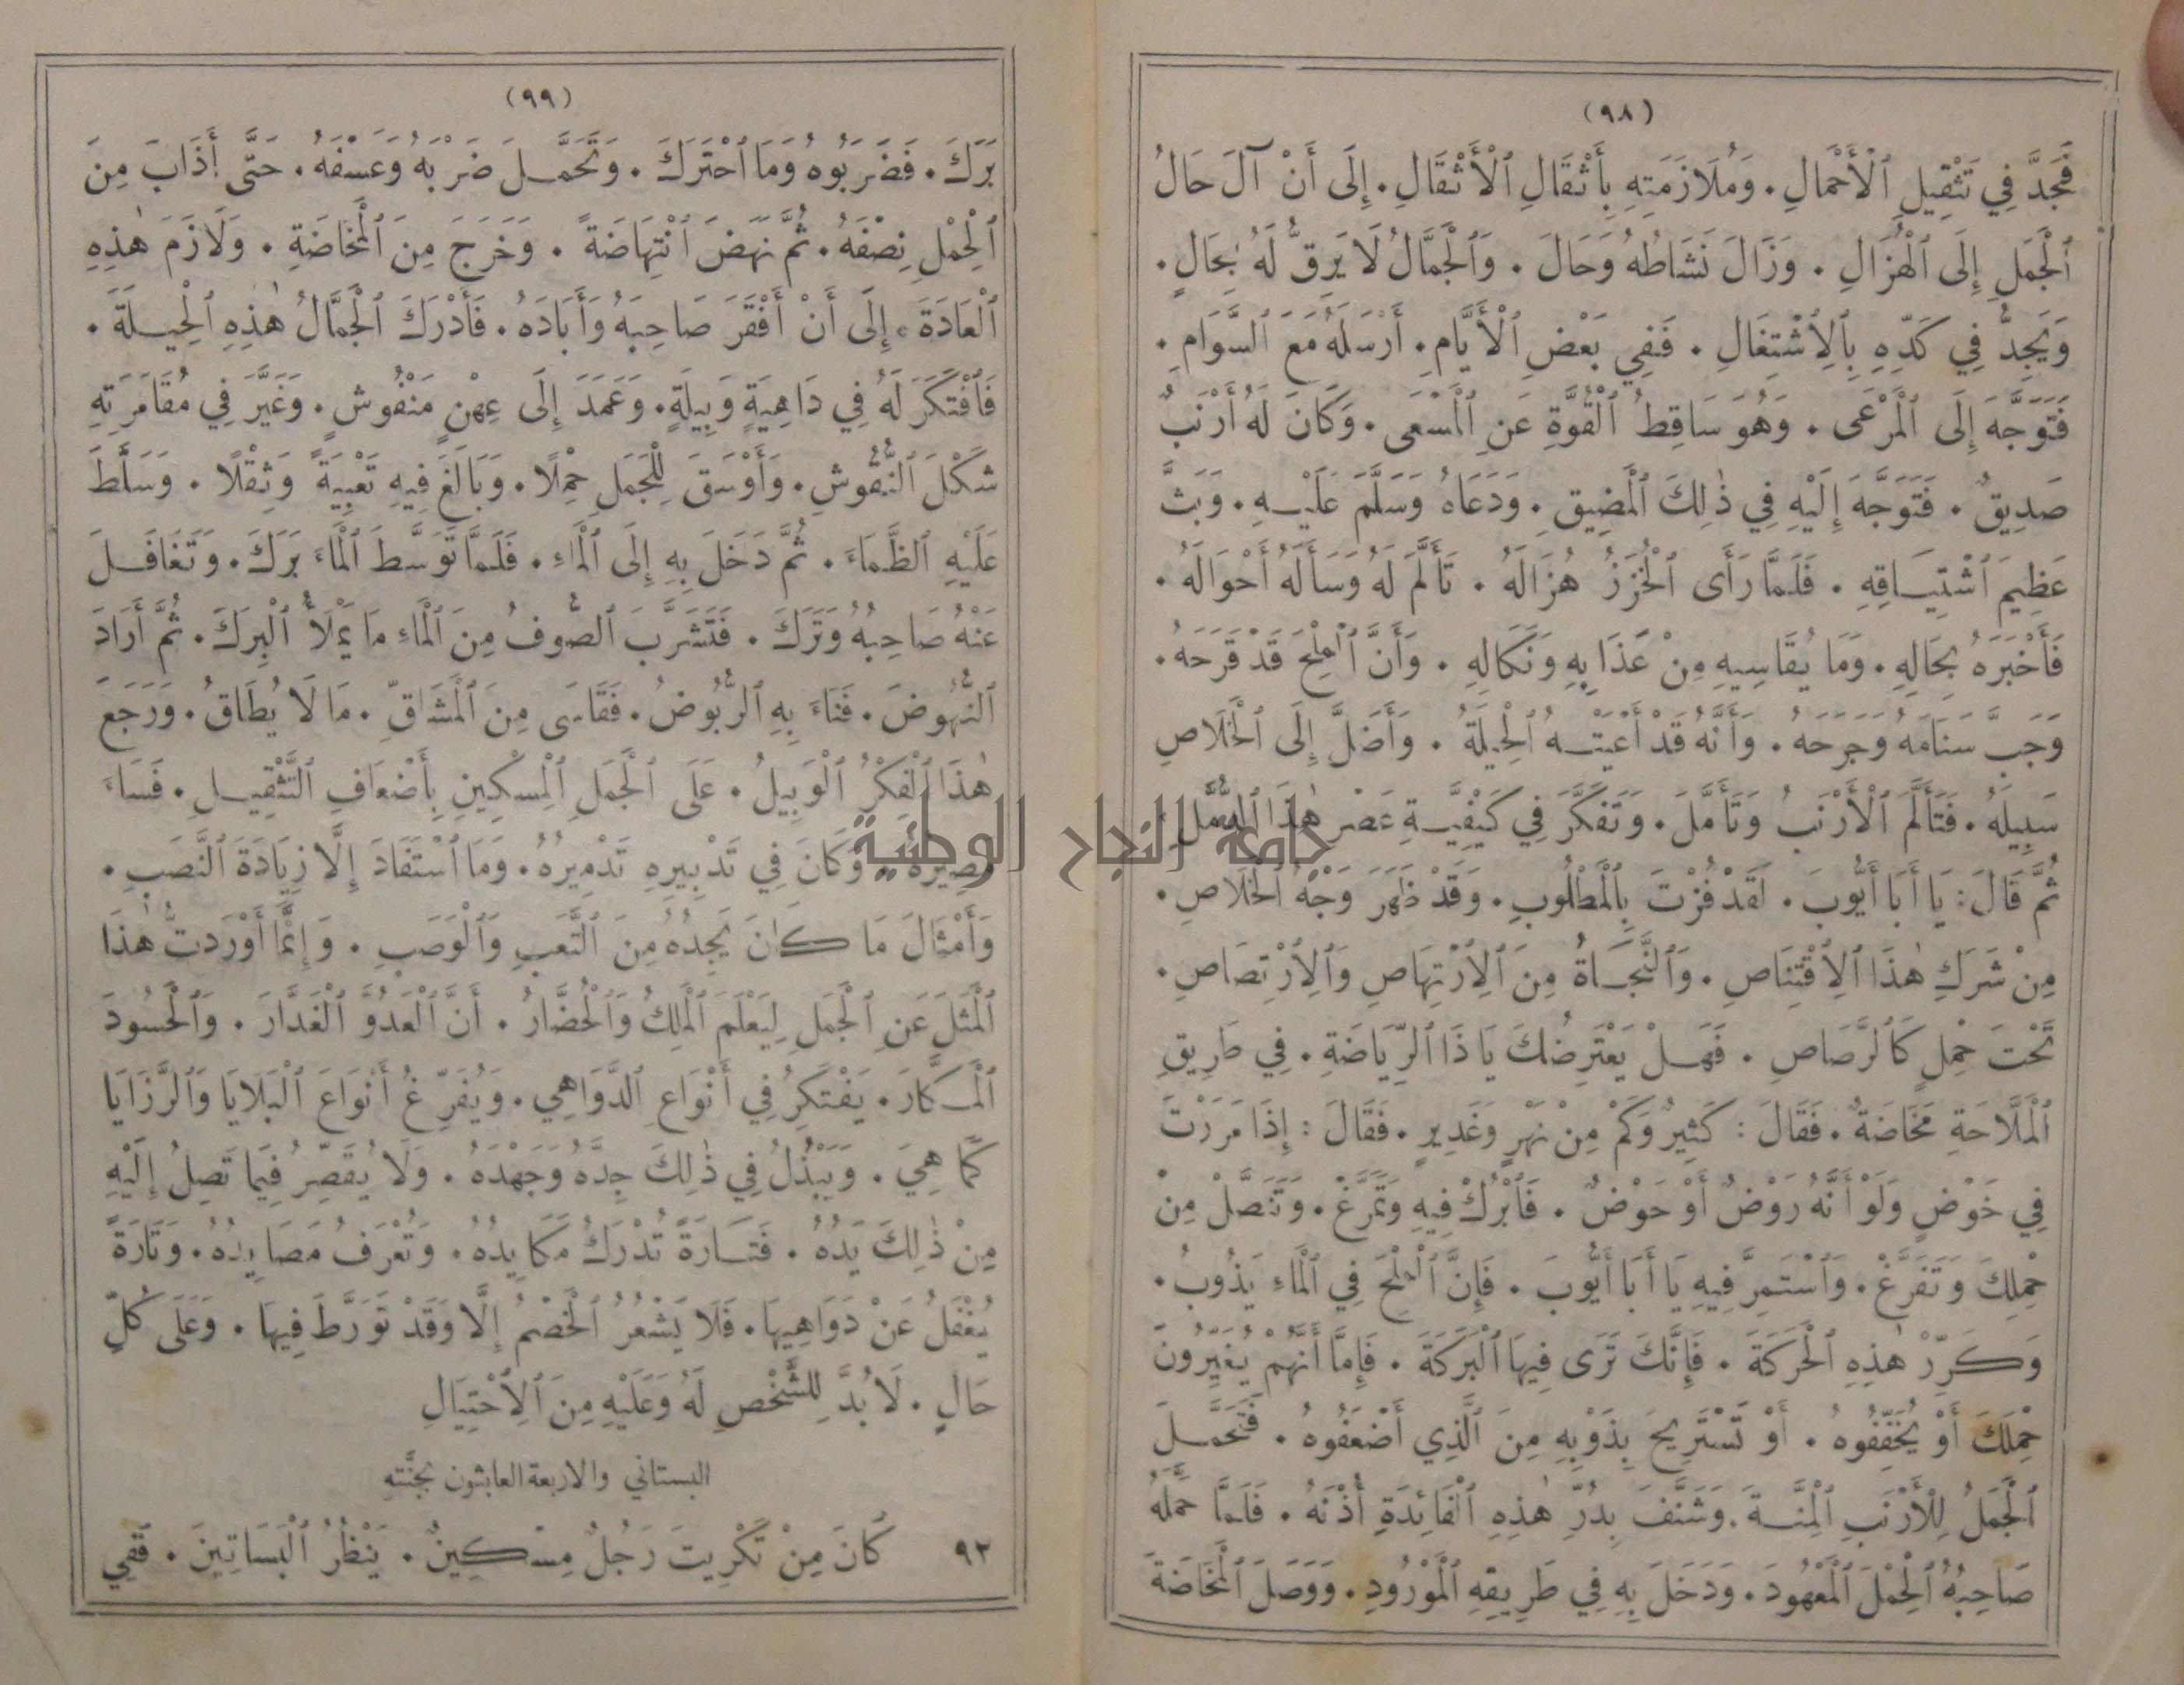 (٩٨)
فَجَدَّ فِي تَثْقِيلِ ٱلْأَحْمَالِ. وَمُلَازَمَتِهِ بِأَثْقَالِ ٱلْأَثْقَالِ. إِلَى أَنْ آلَ حَالُ
ٱلْجَمَلِ إِلَى ٱلْهُزَالِ. وَزَالَ نَشَاطُهُ وَحَالَ. وَٱلْجَمَّالُ لَا يَرِقُّ لَهُ بِحَالٍ.
وَيَجِدُّ فِي كَدِّهِ بِٱلِٱشْتِغَالِ. فَفِي بَعْضِ ٱلْأَيَّامِ. أَرْسَلَهُ مَعَ ٱلسَّوَامِ.
فَتَوَجَّهَ إِلَى ٱلْمَرْعَى. وَهُوَ سَاقِطُ ٱلْقُوَّةِ عَنِ ٱلْمَسْعَى. وَكَانَ لَهُ أَرْنَبٌ
صَدِيقٌ. فَتَوَجَّهَ إِلَيْهِ فِي ذٰلِكَ ٱلْمَضِيقِ. وَدَعَاهُ وَسَلَّمَ عَلَيْهِ. وَبَثَّ
عَظِيمَ ٱشْتِيَاقِهِ. فَلَمَّا رَأَى ٱلْخُزَزُ هُزَالَهُ. تَأَلَّمَ لَهُ وَسَأَلَهُ أَحْوَالَهُ.
فَأَخْبَرَهُ بِحَالِهِ. وَمَا يُقَاسِيهِ مِنْ عَذَابِهِ وَنَكَالِهِ. وَأَنَّ ٱلْمِلْحَ قَدْ قَرَحَهُ.
وَجَبَّ سَنَامَهُ وَجَرَحَهُ. وَأَنَّهُ قَدْ أَعْيَتْهُ ٱلْحِيلَةُ. وَأَضَلَّ إِلَى ٱلْخَلَاصِ
سَبِيلَهُ. فَتَأَلَّمَ ٱلْأَرْنَبُ وَتَأَمَّلَ. وَتَفَكَّرَ فِي كَيْفِيَّةِ عَصْرِ هٰذَا ٱلدُّمَّلِ.
ثُمَّ قَالَ: يَا أَبَا أَيُّوبَ. لَقَدْ فُزْتَ بِٱلْمَطْلُوبِ. وَقَدْ ظَهَرَ وَجْهُ ٱلْخَلَاصِ.
مِنْ شَرَكِ هٰذَا ٱلِٱقْتِنَاصِ. وَٱلنَّجَاةُ مِنَ ٱلِٱرْتِهَاصِ وَٱلِٱرْتِصَاصِ.
تَحْتَ حِمْلٍ كَٱلرَّصَاصِ. فَهَلْ يَعْتَرِضُكَ يَا ذَا ٱلرِّيَاضَةِ. فِي طَرِيقِ
ٱلْمَلَّاحَةِ مَخَاضَةٌ. فَقَالَ: كَثِيرٌ وَكَمْ مِنْ نَهْرٍ وَغَدِيرٍ. فَقَالَ: إِذَا مَرَرْتَ
فِي خَوْضٍ وَلَوْ أَنَّهُ رَوْضٌ أَوْ حَوْضٌ. فَٱبْرُكْ فِيهِ وَتَمَرَّغْ. وَتَنَصَّلْ مِنْ
حِمْلِكَ وَتَفَرَّغْ. وَٱسْتَمِرَّ فِيهِ يَا أَبَا أَيُّوبَ. فَإِنَّ ٱلْمِلْحَ فِي ٱلْمَاءِ يَذُوبُ.
وَكَرِّرْ هٰذِهِ ٱلْحَرَكَةَ. فَإِنَّكَ تَرَى فِيهَا ٱلْبَرَكَةَ. فَإِمَّا أَنَّهُمْ يُغَيِّرُونَ
حِمْلَكَ أَوْ يُخَفِّفُوهُ. أَوْ تَسْتَرِيحَ بِذَوْبِهِ مِنَ ٱلَّذِي أَضْعَفُوهُ. فَتَحَمَّلَ
ٱلْجَمَلُ لِلْأَرْنَبِ ٱلْمِنَّةَ. وَشَنَّفَ بِدُرِّ هٰذِهِ ٱلْفَائِدَةِ أُذْنَهُ. فَلَمَّا حَمَّلَهُ
صَاحِبُهُ ٱلْحِمْلَ ٱلْمَعْهُودَ. وَدَخَلَ بِهِ فِي طَرِيقِهِ ٱلْمَوْرُودِ. وَوَصَلَ ٱلْمَخَاضَةَ
(٩٩)
بَرَكَ. فَضَرَبُوهُ وَمَا ٱحْتَرَكَ. وَتَحَمَّلَ ضَرْبَهُ وَعَسْفَهُ. حَتَّى أَذَابَ مِنَ
ٱلْحِمْلِ نِصْفَهُ. ثُمَّ نَهَضَ ٱنْتِهَاضَةً. وَخَرَجَ مِنَ ٱلْمَخَاضَةِ. وَلَازَمَ هٰذِهِ
ٱلْعَادَةَ. إِلَى أَنْ أَفْقَرَ صَاحِبَهُ وَأَبَادَهُ. فَأَدْرَكَ ٱلْجَمَّالُ هٰذِهِ ٱلْحِيلَةَ.
فَٱفْتَكَرَ لَهُ فِي دَاهِيَةٍ وَبِيلَةٍ. وَعَمَدَ إِلَى عِهْنٍ مَنْفُوشٍ. وَغَيَّرَ فِي مُقَامَرَتِهِ
شَكْلَ ٱلنُّقُوشِ. وَأَوْسَقَ لِلْجَمَلِ حِمْلًا. وَبَالَغَ فِيهِ تَعْبِيَةً وَثِقْلًا. وَسَلَّطَ
عَلَيْهِ ٱلظَّمَاءَ. ثُمَّ دَخَلَ بِهِ إِلَى ٱلْمَاءِ. فَلَمَّا تَوَسَّطَ ٱلْمَاءَ بَرَكَ. وَتَغَافَلَ
عَنْهُ صَاحِبُهُ وَتَرَكَ. فَتَشَرَّبَ ٱلصُّوفُ مِنَ ٱلْمَاءِ مَا يَمْلَأُ ٱلْبِرَكَ. ثُمَّ أَرَادَ
ٱلنُّهُوضَ. فَنَاءَ بِهِ ٱلرُّبُوضُ. فَقَاسَى مِنَ ٱلْمَشَاقِّ. مَا لَا يُطَاقُ. وَرَجَعَ
هٰذَا ٱلْفِكْرُ ٱلْوَبِيلُ. عَلَى ٱلْجَمَلِ ٱلْمِسْكِينِ بِأَضْعَافِ ٱلتَّثْقِيلِ. فَسَاءَ
مَصِيرُهُ. وَكَانَ فِي تَدْبِيرِهِ تَدْمِيرُهُ. وَمَا ٱسْتَفَادَ إِلَّا زِيَادَةَ ٱلنَّصَبِ.
وَأَمْثَالَ مَا كَانَ يَجِدُهُ مِنَ ٱلتَّعَبِ وَٱلْوَصَبِ. وَإِنَّمَا أَوْرَدتُّ هٰذَا
ٱلْمَثَلَ عَنِ ٱلْجَمَلِ لِيَعْلَمَ ٱلْمَلِكُ وَٱلْحُضَّارُ. أَنَّ ٱلْعَدُوَّ ٱلْغَدَّارَ. وَٱلْحَسُودَ
ٱلْمَكَّارَ. يَفْتَكِرُ فِي أَنْوَاعِ ٱلدَّوَاهِي. وَيُفَرِّغُ أَنْوَاعَ ٱلْبَلَايَا وَٱلرَّزَايَا
كَمَا هِيَ. وَيَبْذُلُ فِي ذٰلِكَ جِدَّهُ وَجَهْدَهُ. وَلَا يُقَصِّرُ فِيمَا تَصِلُ إِلَيْهِ
مِنْ ذٰلِكَ يَدُهُ. فَتَارَةً تُدْرَكُ مَكَايِدُهُ. وَتُعْرَفُ مَصَايِدُهُ. وَتَارَةً
يُغْفَلُ عَنْ دَوَاهِيهَا. فَلَا يَشْعُرُ ٱلْخَصْمُ إِلَّا وَقَدْ تَوَرَّطَ فِيهَا. وَعَلَى كُلِّ
حَالٍ. لَا بُدَّ لِلشَّخْصِ لَهُ وَعَلَيْهِ مِنَ ٱلِٱحْتِيَالِ
البستاني والاربعة العابثون بجنَّته
٩٢ كَانَ مِنْ تَكْرِيتَ رَجُلٌ مِسْكِينٌ. يَنْظُرُ ٱلْبَسَاتِينَ. فَفِي
جامعة النجاح الوطنية